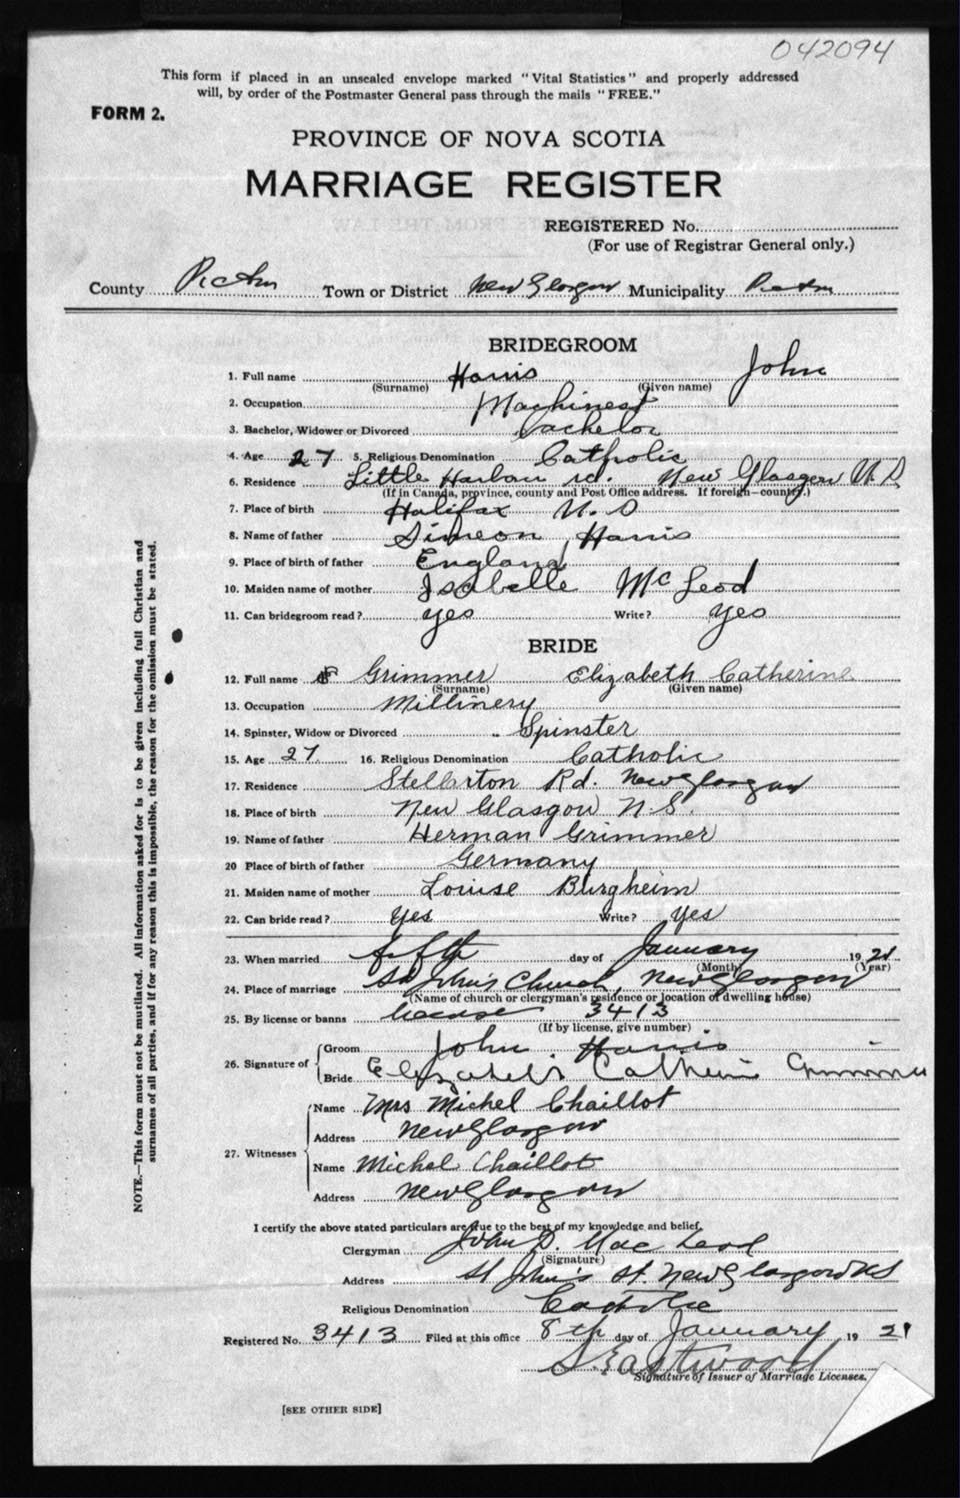 042094
This form if placed in an unsealed envelope marked "Vital Statistics" and properly addressed
will, by order of the Postmaster General pass through the mails "FREE."
FORM 2.
PROVINCE OF NOVA SCOTIA
MARRIAGE REGISTER
REGISTERED No.
(For use of Registrar General only.)
County Pictou Town or District New Glasgow Municipality Pictou
BRIDEGROOM
1. Full name Harris John
(Surname) (Given name)
2. Occupation Machinest
3. Bachelor, Widower or Divorced Bachelor
4. Age 27 5. Religious Denomination Catholic
6. Residence Little Harbour rd. New Glasgow N S
(If in Canada, province, county and Post Office address. If foreign—country.)
7. Place of birth Halifax N. S
8. Name of father Simeon Harris
9. Place of birth of father England
10. Maiden name of mother Isabelle McLeod
11. Can bridegroom read? yes Write? yes
BRIDE
12. Full name Grimmer Elizabeth Catherine
(Surname) (Given name)
13. Occupation Millinery
14. Spinster, Widow or Divorced Spinster
15. Age 27. 16. Religious Denomination Catholic
17. Residence Stellarton Rd. New Glasgow
18. Place of birth New Glasgow N.S.
19. Name of father Herman Grimmer
20 Place of birth of father Germany
21. Maiden name of mother Louise Burgheim
22. Can bride read? Yes Write? Yes
23. When married fifth day of January 19 21
(Month) (Year)
24. Place of marriage St John's Church, New Glasgow
(Name of church or clergyman's residence or location of dwelling house)
25. By license or banns license 3413
(If by license, give number)
26. Signature of Groom John Harris
Bride Elizabeth Catherine Grimmer
27. Witnesses
Name Mrs Michel Chaillot
Address New Glasgow
Name Michel Chaillot
Address New Glasgow
I certify the above stated particulars are true to the best of my knowledge and belief.
Clergyman John D. MacLeod
(Signature)
Address St John's St. New Glasgow NS
Religious Denomination Catholic
Registered No. 3413 Filed at this office 8th day of January 19 21
S. Eastwood
Signature of Issuer of Marriage Licenses.
[SEE OTHER SIDE]
NOTE.—This form must not be mutilated. All information asked for is to be given including full Christian and
surnames of all parties, and if for any reason this is impossible, the reason for the omission must be stated.